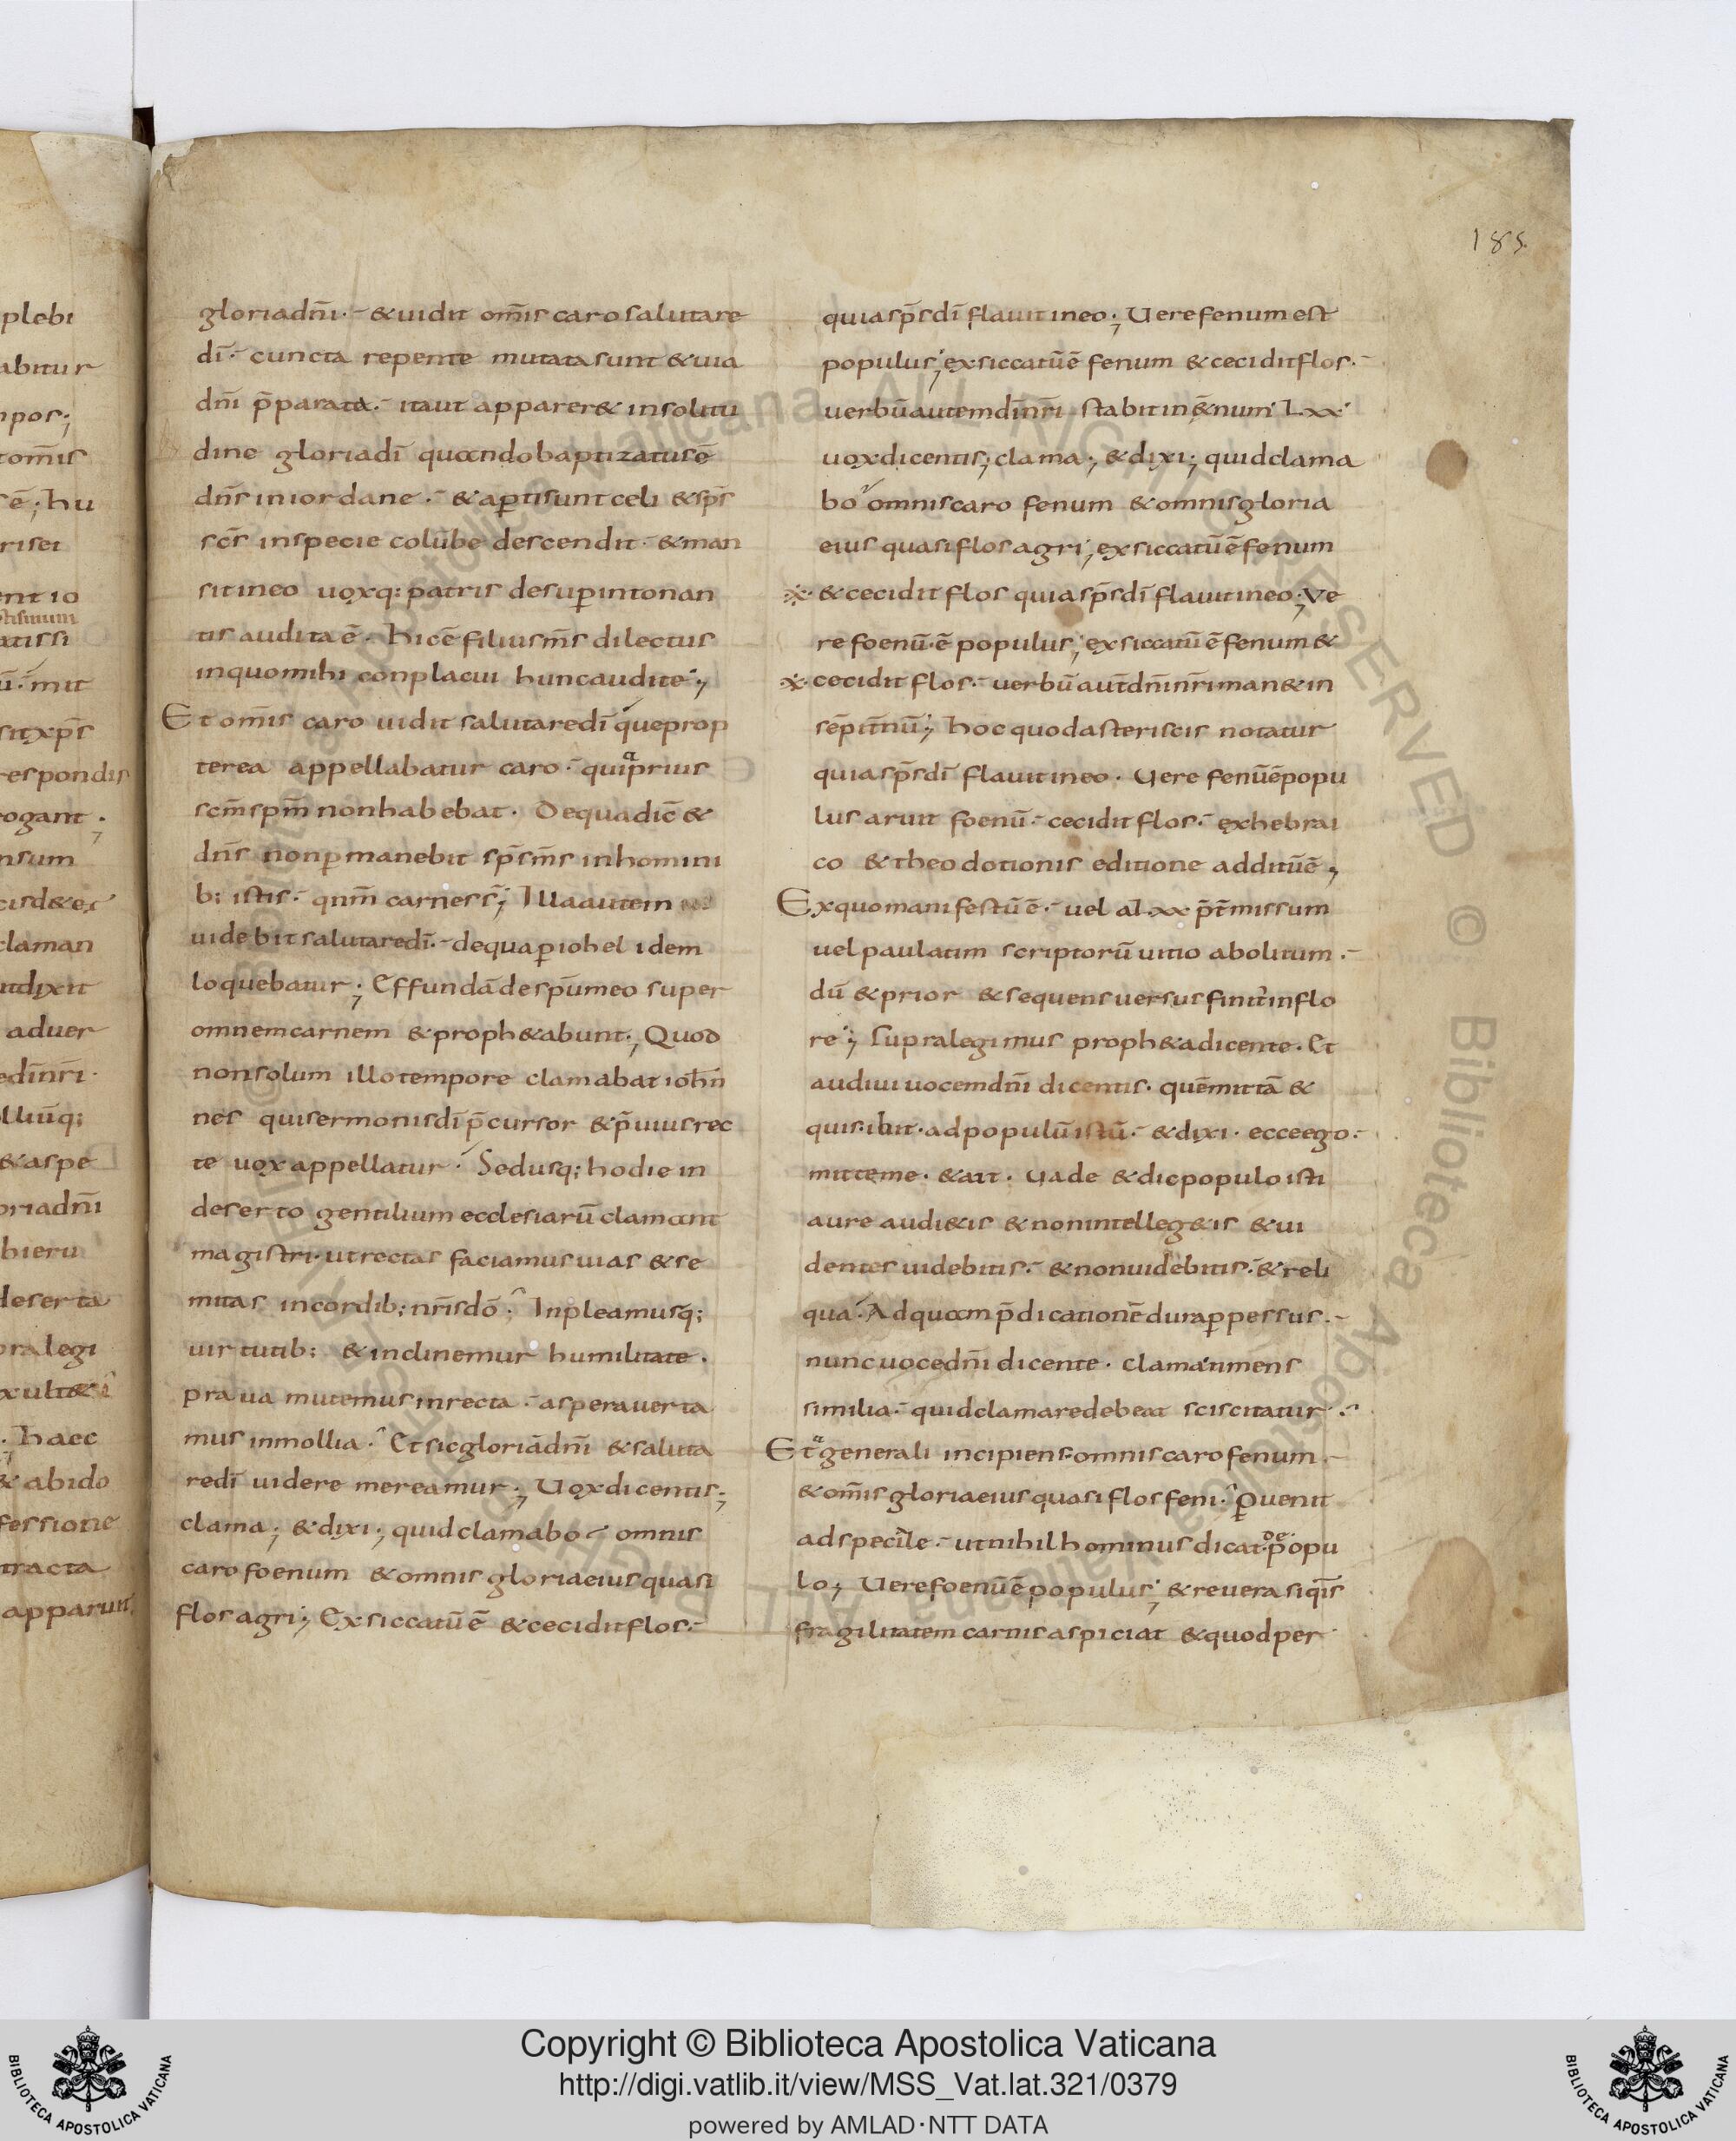 plebi
abitur
mpos;
omīs
sē; hu
risei
ent io
atissi
ū. mit
respondis
rogant.
nsum
claman
utdixit
aduer
edīnr̄i.
lliūq;
&aspe
oriadn̄i
bieru
deserta
pralegi
xult&
haec
& abido
fessione
tracta
apparuit
185
gloriadn̄i. & uidit om̄is caro salutare
dī. cuncta repente mutata sunt & uia
dn̄i p̄parata. itaut apparer& insolitu
dine gloriadī quando baptizatus ē
dn̄s in iordane. & aꝑti sunt celi & sp̄s
sc̄s inspecie colūbe descendit. & man
sit ineo uoxq; patris desuꝑ intonan
tis audita ē. hic ē filius m̄s dilectus
inquo mihi conplacui hunc audite;
Et om̄is caro uidit salutare dī que prop
terea appellabatur caro. quia prius
sc̄m sp̄m non habebat. De qua dic̄ &
dn̄s non ꝑmanebit sp̄s m̄s in homini
b; istis. qn̄m carnes s̄; Illa autem
uidebit salutare dī. de qua ꝑ iohel idem
loquebatur; Effundā de sp̄u meo super
omnem carnem & proph&abunt; Quod
non solum illo tempore clamabat ioh̄n
nes qui sermonis dī p̄cursor & p̄uius rec
te uox appellatur. Sed usq; hodie in
deserto gentilium ecclesiarū clamant
magistri. ut rectas faciamus uias & se
mitas in cordib; nr̄is dō. Inpleamusq;
uirtutib; & inclinemur humilitate.
praua mutemus in recta. aspera uerta
mus in mollia. Et sic gloriā dn̄i & saluta
re dī uidere mereamur; Uox dicentis;
clama; & dixi; quid clamabo omnis
caro foenum & omnis gloria eius quasi
flos agri; Exsiccatū ē & cecidit flos.
quia sp̄s dī flauit in eo; Uere fenum est
populus; exsiccatū ē fenum & cecidit flos.
uerbū autem dīnr̄i stabit in &̄num; Lxx
uox dicentis; clama; & dixi; quid clama
bo omnis caro fenum & omnis gloria
eius quasi flos agri; exsiccatū ē fenum
※ & cecidit flos quia sp̄s dī flauit in eo; Ve
re foenū ē populus; exsiccatū ē fenum &
※ cecidit flos. uerbū aut̄ dn̄i nr̄i man& in
sēpit̄nū; hoc quod asteriscis notatur
quia sp̄s dī flauit in eo. Uere fenū ē popu
lus aruit foenū. cecidit flos. ex hebrai
co & theodotionis editione additū ē;
Ex quo manifestū ē. uel a lxx p̄t̄missum
uel paulatim scriptorū uitio abolitum.
dū & prior & sequens uersus finit' in flo
re; Supra legimus proph&a dicente. Et
audiui uocem dn̄i dicentis. quē mittā &
quis ibit ad populū istū. & dixi. ecce ego.
mitte me. & ait. Uade & dic populo isti
aure audi&is & non intelleg&is & ui
dentes uidebitis. & non uidebitis. & reli
qua. Ad quam p̄dicationē dura ꝑpessus.
nunc uoce dn̄i dicente. clama timens
similia. quid clamare debeat sciscitatur.
Et a generali incipiens omnis caro fenum.
& om̄is gloria eius quasi flos feni. ꝑuenit
ad speciale. ut nihilhominus dicat de popu
lo; Uere foenū ē populus; & reuera siq̄s
fragilitatem carnis aspiciat & quod per
Copyright © Biblioteca Apostolica Vaticana
http://digi.vatlib.it/view/MSS_Vat.lat.321/0379
powered by AMLAD·NTT DATA
BIBLIOTECA APOSTOLICA VATICANA
BIBLIOTECA APOSTOLICA VATICANA